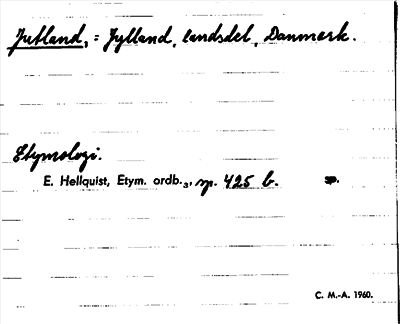 Jutland, = Jylland, landsdel, Danmark.
Etymologi.
E. Hellquist, Etym. ordb.₃, sp. 425 b.
C. M.-A. 1960.